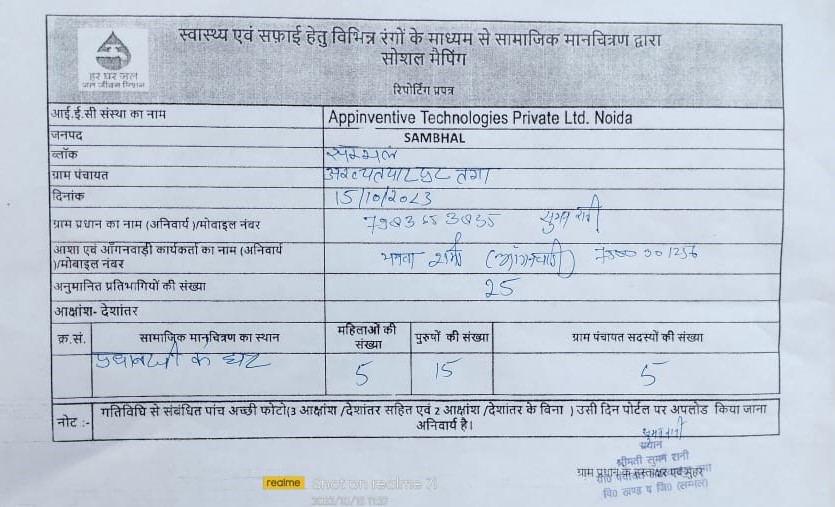 स्वास्थ्य एवं सफ़ाई हेतु विभिन्न रंगों के माध्यम से सामाजिक मानचित्रण द्वारा
सोशल मैपिंग
हर घर जल
जल जीवन मिशन
रिपोर्टिंग प्रपत्र
आई.ई.सी संस्था का नाम Appinventive Technologies Private Ltd. Noida
जनपद SAMBHAL
ब्लॉक सम्भल
ग्राम पंचायत तगा
दिनांक 15/10/2023
ग्राम प्रधान का नाम (अनिवार्य )/मोबाइल नंबर
आशा एवं आँगनवाड़ी कार्यकर्ता का नाम (अनिवार्य शर्मा (आंगनवाड़ी)
)/मोबाइल नंबर
अनुमानित प्रतिभागियों की संख्या 25
आक्षांश- देशांतर
क्र.सं. सामाजिक मानचित्रण का स्थान महिलाओं की संख्या पुरुषों की संख्या ग्राम पंचायत सदस्यों की संख्या
प्रधानजी के घर 5 15 5
नोट :- गतिविधि से संबंधित पांच अच्छी फोटो(3 आक्षांश /देशांतर सहित एवं 2 आक्षांश /देशांतर के बिना ) उसी दिन पोर्टल पर अपलोड किया जाना
अनिवार्य है।
प्रधान
श्रीमती सुमन रानी
ग्राम प्रधान के हस्ताक्षर एवं मुहर
वि० खण्ड व जि० (सम्भल)
realme Shot on realme